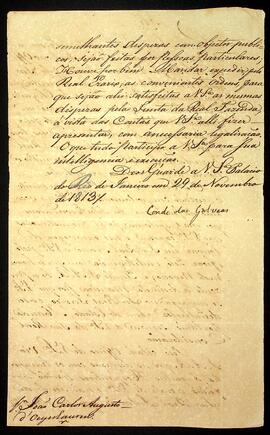 similhantes despezas com objectos publi-
cos, sejão feitas por pessoas particulares,
Houve por bem Mandar expedir pelo
Real Erario, as convenientes ordens, para
que sejão ahi satisfeitas a VSª as mesmas
despezas pela Junta da Real Fazenda,
á vista das Contas que VSª alli fizer
apresentar, com a necessaria legalização.
O que tudo participo a VSª para sua
intelligencia e execução.
Deos Guarde a VSª Palacio
do Rio de Janeiro em 29 de Novembro
de 1813.
Conde das Galveas
João Carlos Augusto
d'Oeynhausen.